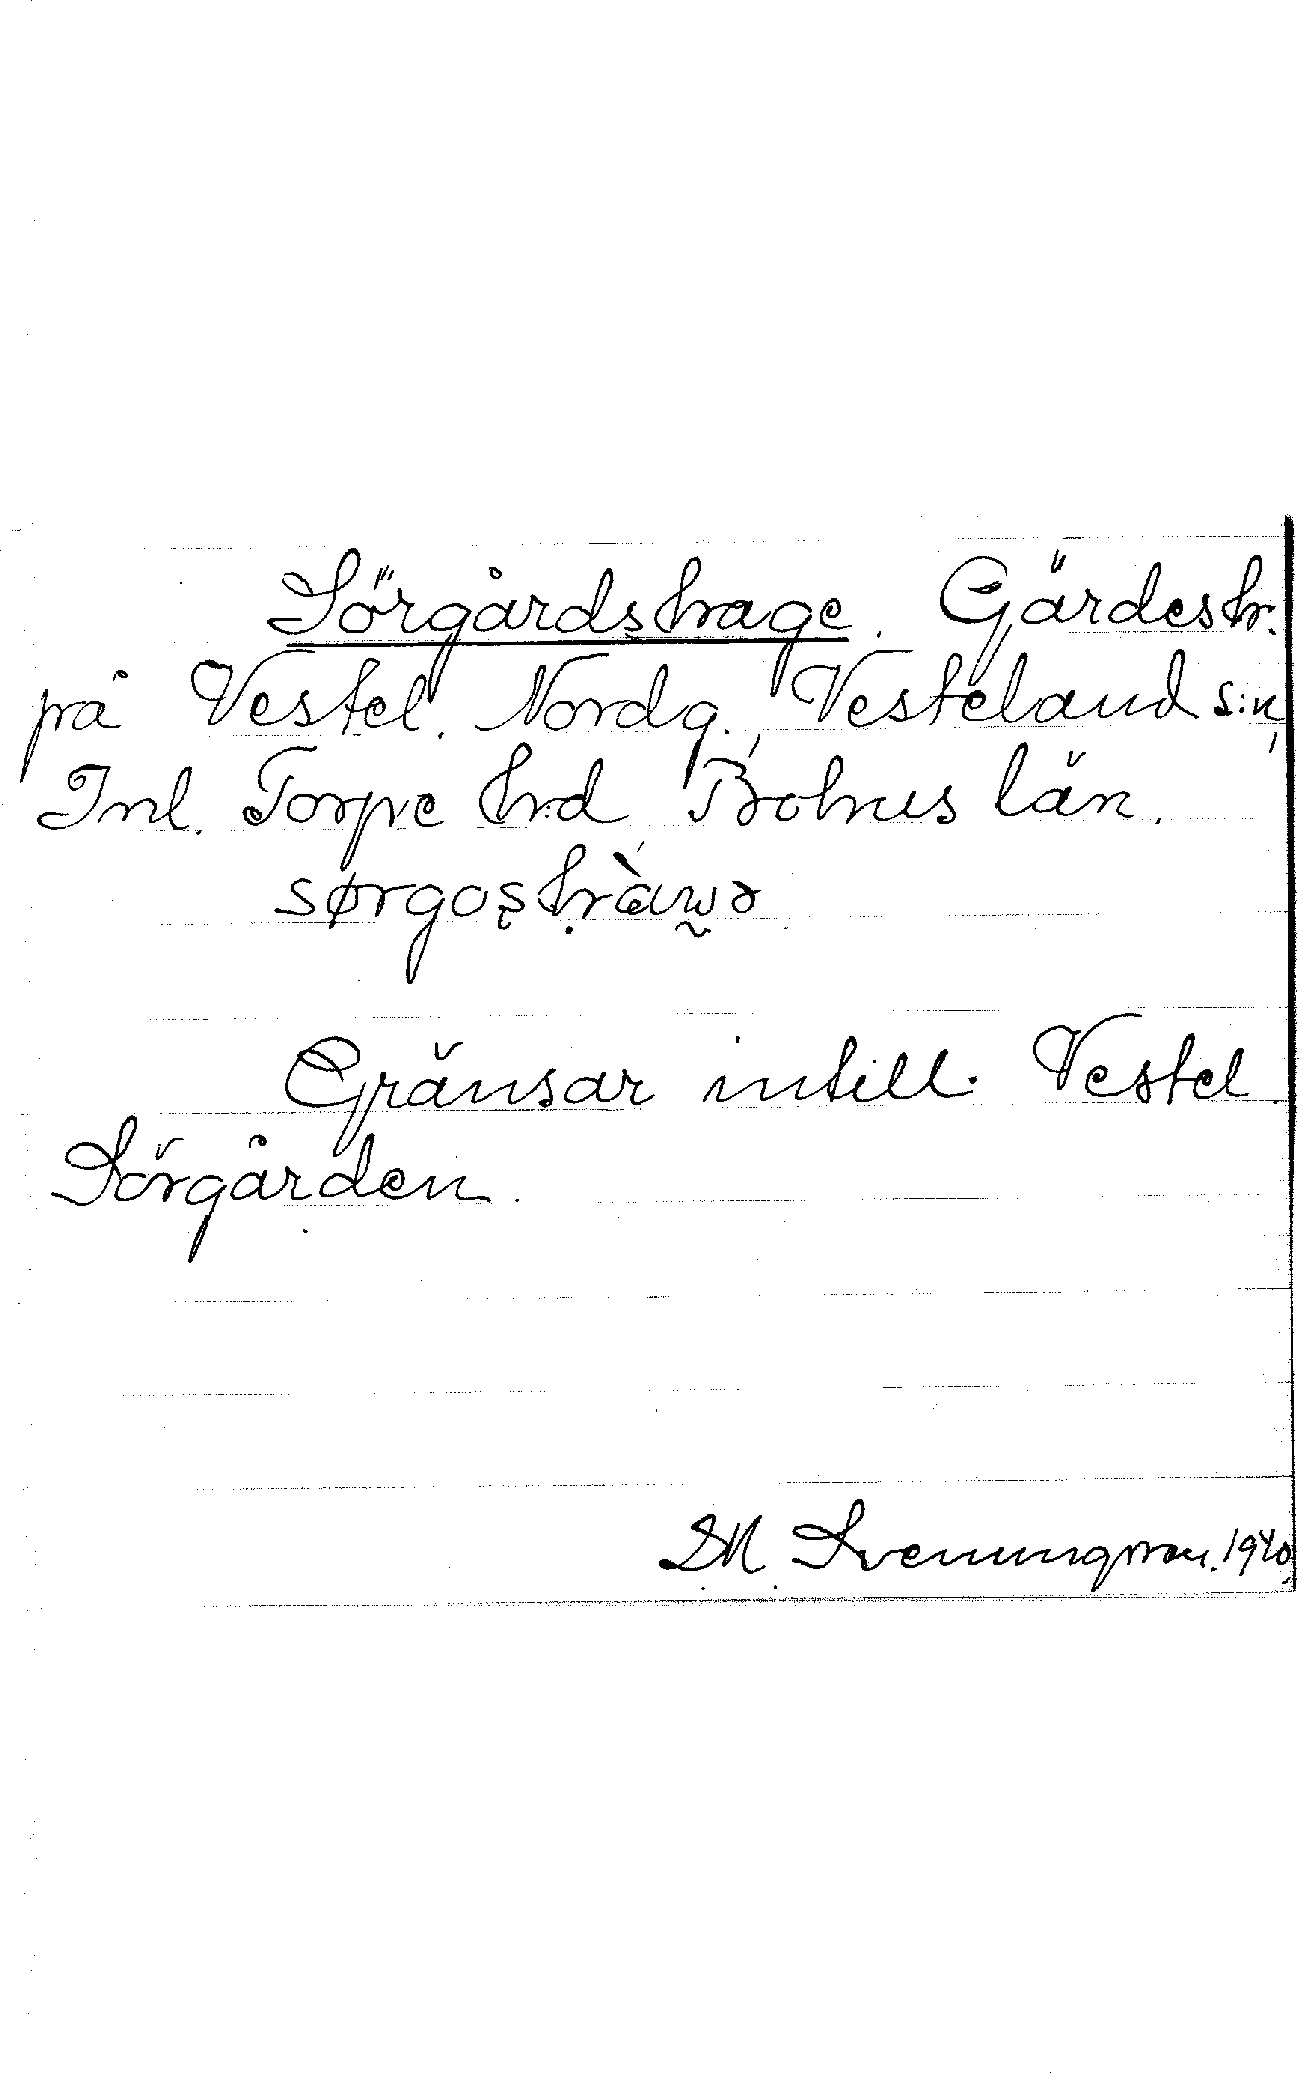 Sörgårdshage. Gärdeshr.
på Vestel. Nordg., Vesteland s:n,
Inl. Torpe hrd, Bohus län.
sørgoşhràwə
Gränsar intill Vestel
Sörgården.
SM Svenungson. 1940.